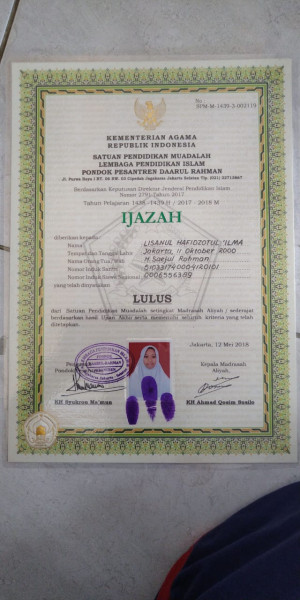 No :
SPM-M-1439-3-003119
KEMENTERIAN AGAMA
REPUBLIK INDONESIA
SATUAN PENDIDIKAN MUADALAH
LEMBAGA PENDIDIKAN ISLAM
PONDOK PESANTREN DAARUL RAHMAN
Berdasarkan Keputusan Direktur Jenderal Pendidikan Islam
Nomor 2791 Tahun 2017
Tahun Pelajaran 1438-1439 H / 2017 - 2018 M
IJAZAH
diberikan kepada:
Nama LISANUL HAFIDZOTUL 'ILMA
Tempat dan Tanggal Lahir Jakarta, 11 Oktober 2000
Nama Orang Tua/Wali M. Saepul Rohman
Nomor Induk Santri
Nomor Induk Siswa Nasional 0006556389
yang telah dinyatakan
LULUS
dari Satuan Pendidikan Muadalah setingkat Madrasah Aliyah / sederajat
berdasarkan hasil Ujian Akhir serta memenuhi seluruh kriteria yang telah
ditetapkan.
Jakarta, 12 Mei 2018
Kepala Madrasah
Aliyah,
KH Syukron Ma'mun
KH Ahmad Qosim Susilo